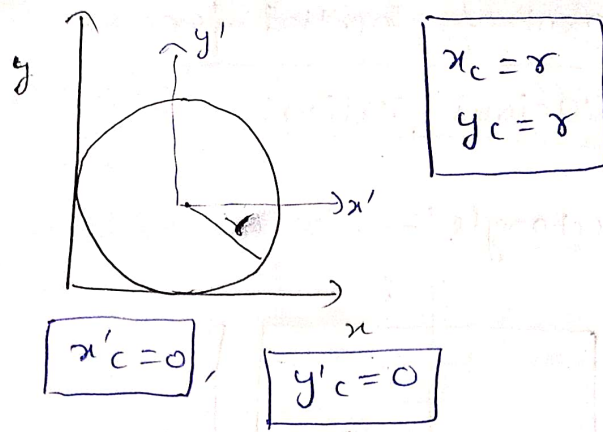 y
y'
x_c = r
y_c = r
x'
r
x
x'_c = 0, y'_c = 0